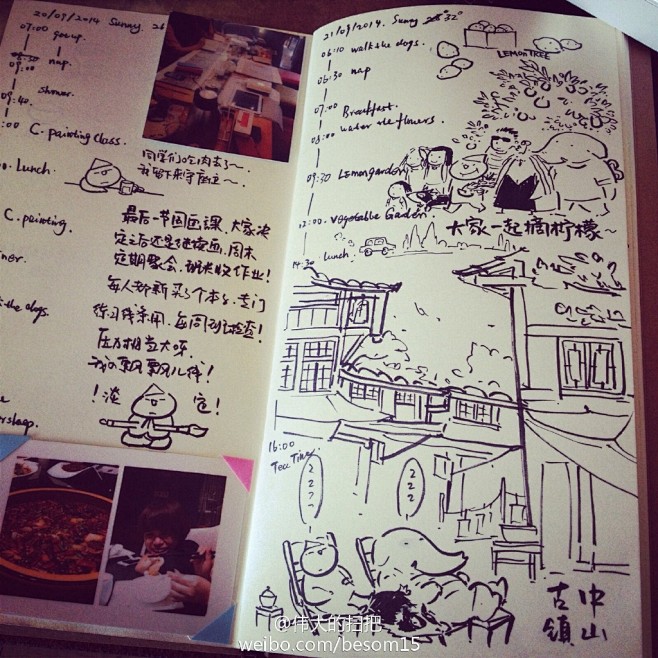 20/09/2014 Sunny. 26
07:00 get up.
nap.
09:00
shower.
09:40.
:00 C. painting class.
同学们吃肉去了~.
我留下来守座位~.
Lunch.
C. painting.
最后一节国画课,大家决
定之后还是继续画,周末
定期聚会,
收作业!
每人都新买了个本,专门
练习线条用,每周到检查!
压力相当大呀.
我的飘飘儿线!
the dogs.
!淡定!
21/09/2014. Sunny 32°
06:10 walk the dogs.
06:30 nap
07:00 Breakfast.
08:00 water the flowers.
LEMON TREE
09:30 Lemon garden
12:00. Vegetable Garden
大家一起摘柠檬~
14:30 Lunch.
16:00
Tea Time
中山
古镇
@伟大的扫把
weibo.com/besom15